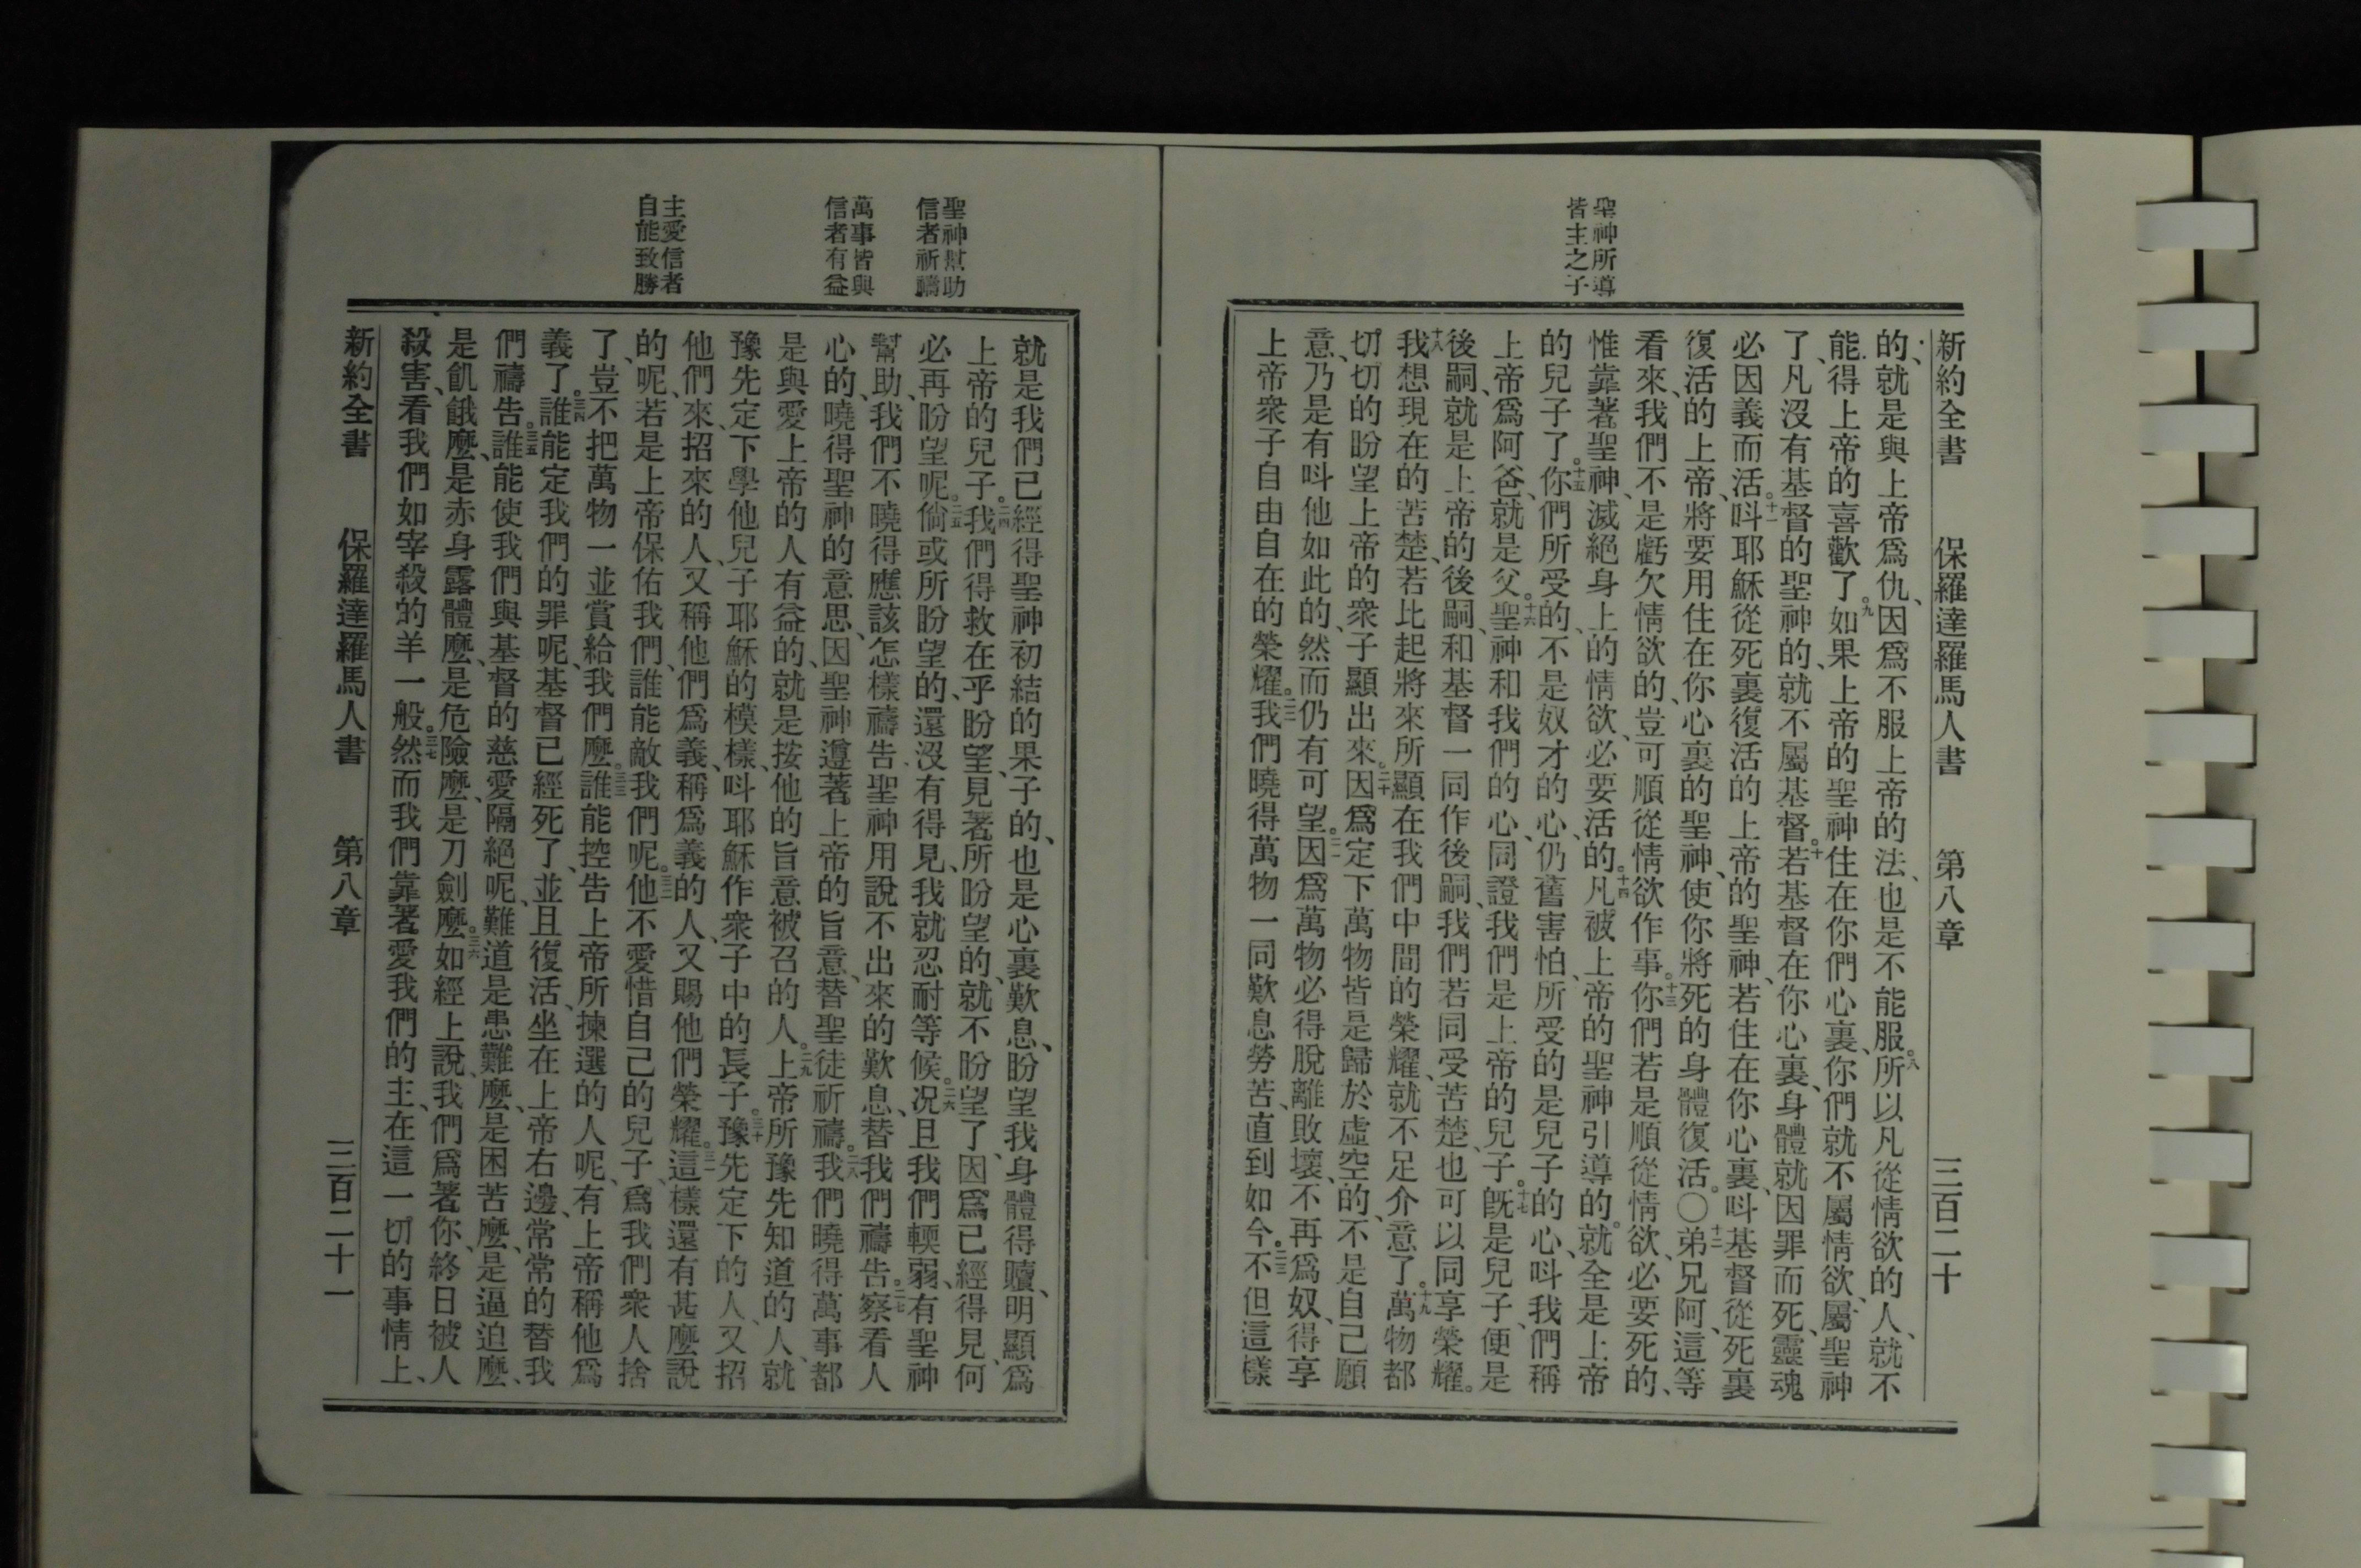 聖神所導
皆主之子
新約全書　保羅達羅馬人書　第八章　三百二十
的、就是與上帝爲仇、因爲不服上帝的法、也是不能服。八所以凡從情欲的人、就不
能得上帝的喜歡了。九如果上帝的聖神住在你們心裏、你們就不屬情欲、屬聖神
了、凡沒有基督的聖神的、就不屬基督。十若基督在你心裏、身體就因罪而死、靈魂
必因義而活。十一呌耶穌從死裏復活的上帝的聖神、若住在你心裏、呌基督從死裏
復活的上帝、將要用住在你心裏的聖神、使你將死的身體復活。〇十二弟兄阿、這等
看來、我們不是虧欠情欲的、豈可順從情欲作事。十三你們若是順從情欲、必要死的、
惟靠著聖神、滅絕身上的情欲、必要活的。十四凡被上帝的聖神引導的。就全是上帝
的兒子了。十五你們所受的、不是奴才的心、仍舊害怕、所受的是兒子的心、呌我們稱
上帝爲阿爸、就是父。十六聖神和我們的心、同證我們是上帝的兒子。十七旣是兒子、便是
後嗣、就是上帝的後嗣、和基督一同作後嗣、我們若同受苦楚、也可以同享榮耀。
十八我想現在的苦楚、若比起將來所顯在我們中間的榮耀、就不足介意了。十九萬物都
切切的盼望上帝的衆子顯出來。二十因爲定下萬物皆是歸於虛空的、不是自己願
意、乃是有呌他如此的、然而仍有可望。二一因爲萬物必得脫離敗壞、不再爲奴、得享
上帝衆子自由自在的榮耀。二二我們曉得萬物一同歎息勞苦、直到如今。二三不但這樣
聖神幫助
信者祈禱
萬事皆與
信者有益
主愛信者
自能致勝
就是我們已經得聖神初結的果子的、也是心裏歎息、盼望我身體得贖、明顯爲
上帝的兒子。二四我們得救在乎盼望、見著所盼望的、就不盼望了、因爲已經得見、何
必再盼望呢。二五倘或所盼望的、還沒有得見、我就忍耐等候。二六况且我們輭弱、有聖神
幫助、我們不曉得應該怎樣禱告、聖神用說不出來的歎息、替我們禱告。二七察看人
心的、曉得聖神的意思、因聖神遵著上帝的旨意、替聖徒祈禱。二八我們曉得萬事都
是與愛上帝的人有益的、就是按他的旨意被召的人。二九上帝所豫先知道的人、就
豫先定下學他兒子耶穌的模樣、呌耶穌作衆子中的長子。三十豫先定下的人、又招
他們來、招來的人、又稱他們爲義、稱爲義的人、又賜他們榮耀。三一這樣還有甚麼說
的呢、若是上帝保佑我們、誰能敵我們呢。三二他不愛惜自己的兒子、爲我們衆人捨
了、豈不把萬物一並賞給我們麼。三三誰能控告上帝所揀選的人呢、有上帝稱他爲
義了。三四誰能定我們的罪呢、基督已經死了、並且復活、坐在上帝右邊、常常的替我
們禱告。三五誰能使我們與基督的慈愛隔絕呢、難道是患難麼、是困苦麼、是逼迫麼、
是飢餓麼、是赤身露體麼、是危險麼、是刀劍麼。三六如經上說、我們爲著你、終日被人
殺害、看我們如宰殺的羊一般。三七然而我們靠著愛我們的主、在這一切的事情上、
新約全書　保羅達羅馬人書　第八章　三百二十一